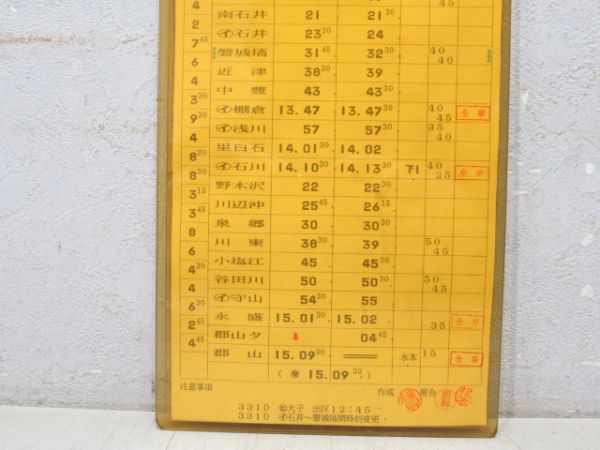 4 45
南石井 21 21 30
2 ㋑石井 23 30 24
7 45 磐城塙 31 45 32 30 40 40
6 近津 38 30 39
4 中豊 43 43 30
3 30 ㋑棚倉 13.47 13.47 30 40 45 全車
9 30 ㋑浅川 57 57 30 35 40
4 里白石 14.01 30 14.02
8 30 ㋑石川 14.10 30 14.13 30 下1 40 25 全車
8 30 野木沢 22 22 30
3 15 川辺沖 25 45 26 15
3 45 泉郷 30 30 30
8 川東 38 30 39 50 45
6 小塩江 45 45 30
4 30 谷田川 50 50 30 50 45
4 ㋑守山 54 30 55
6 30 永盛 15.01 30 15.02 35 全車
2 45 郡山タ ↓ 04 45
4 45 郡山 15.09 30 ══ 水本 15 全車
( 15.09 30 ~ )
注意事項 作成 照合
331D 大子 出区12:45
331D ㋑石井~磐城塙間時刻変更